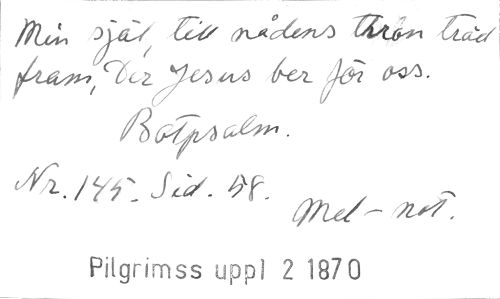 Min själ, till nådens thron träd
fram, Der Jesus ber för oss.
Botpsalm.
Nr. 145. Sid. 58.
Mel-not.
Pilgrimss uppl 2 1870